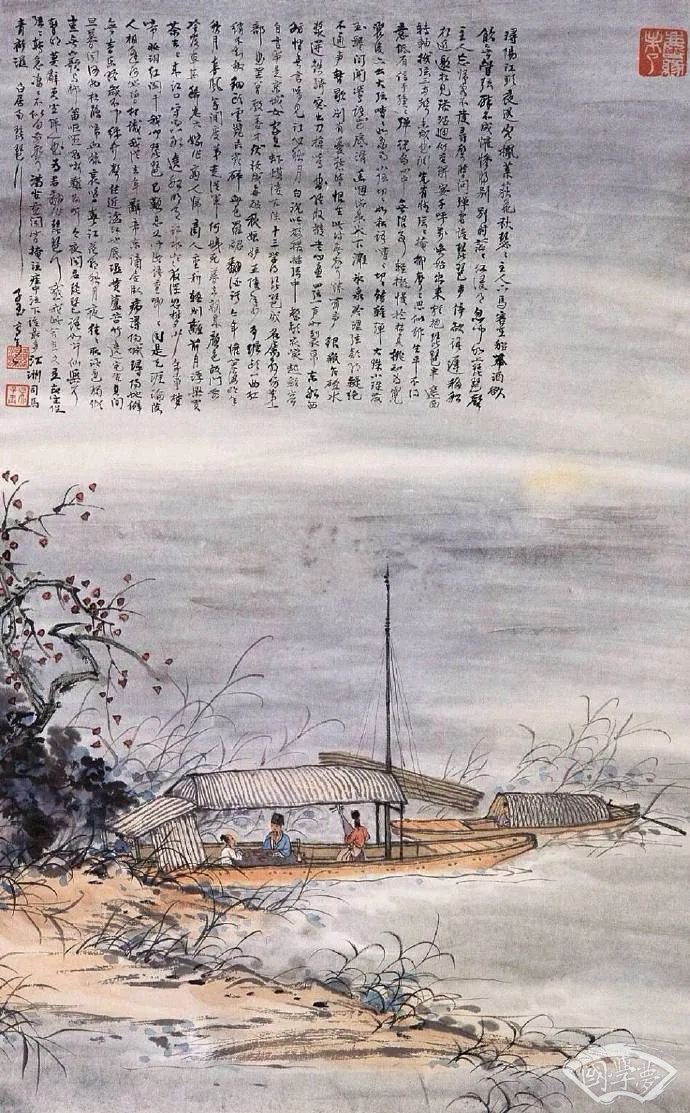 潯陽江頭夜送客楓葉荻花秋瑟瑟主人下馬客在船舉酒欲
飲無管弦醉不成歡慘將別別時茫茫江浸月忽聞水上琵琶聲
主人忘歸客不發尋聲暗問彈者誰琵琶聲停欲語遲移船
相近邀相見添酒回燈重開宴千呼萬喚始出來猶抱琵琶半遮面
轉軸撥弦三兩聲未成曲調先有情弦弦掩抑聲聲思似訴平生不得
志低眉信手續續彈說盡心中無限事輕攏慢撚抹復挑初為霓
裳後六幺大弦嘈嘈如急雨小弦切切如私語嘈嘈切切錯雜彈大珠小珠落
玉盤間關鶯語花底滑幽咽泉流水下灘水泉冷澀弦凝絕凝絕
不通声暫歇別有幽愁暗恨生此時無聲勝有声銀瓶乍破水
漿迸鐵騎突出刀槍鳴曲終收撥當心畫四弦一声如裂帛東船西
舫悄無言唯見江心秋月白沉吟放撥插弦中整頓衣裳起斂容
自言本是京城女家在蝦蟆陵下住十三學得琵琶成名屬教坊第一
部曲罷曾教善才伏妝成每被秋娘妒五陵年少爭纏頭一曲紅
綃不知數鈿頭雲篦擊節碎血色羅裙翻酒污今年歡笑復明年
秋月春風等閒度弟走從軍阿姨死暮去朝來顏色故門前
冷落車馬稀老大嫁作商人婦商人重利輕別離前月浮梁買
茶去去來江口守空船繞船明月江水寒夜深忽夢少年事夢
啼妝淚紅闌干我聞琵琶已嘆息又聞此語重唧唧同是天涯淪落
人相逢何必曾相識我從去年辭帝京謫居臥病潯陽城潯陽地僻
無音樂終歲不聞絲竹聲住近湓江地低濕黃蘆苦竹繞宅生其間
旦暮聞何物杜鵑啼血猿哀鳴春江花朝秋月夜往往取酒還獨傾
豈無山歌與村笛嘔啞嘲哳難為聽今夜聞君琵琶語如聽仙樂耳
暫明莫辭更坐彈一曲為君翻作琵琶行感我此言良久立卻坐促
弦弦轉急淒淒不似向前聲滿座重聞皆掩泣座中泣下誰最多江州司馬
青衫濕 白居易琵琶行
國學夢